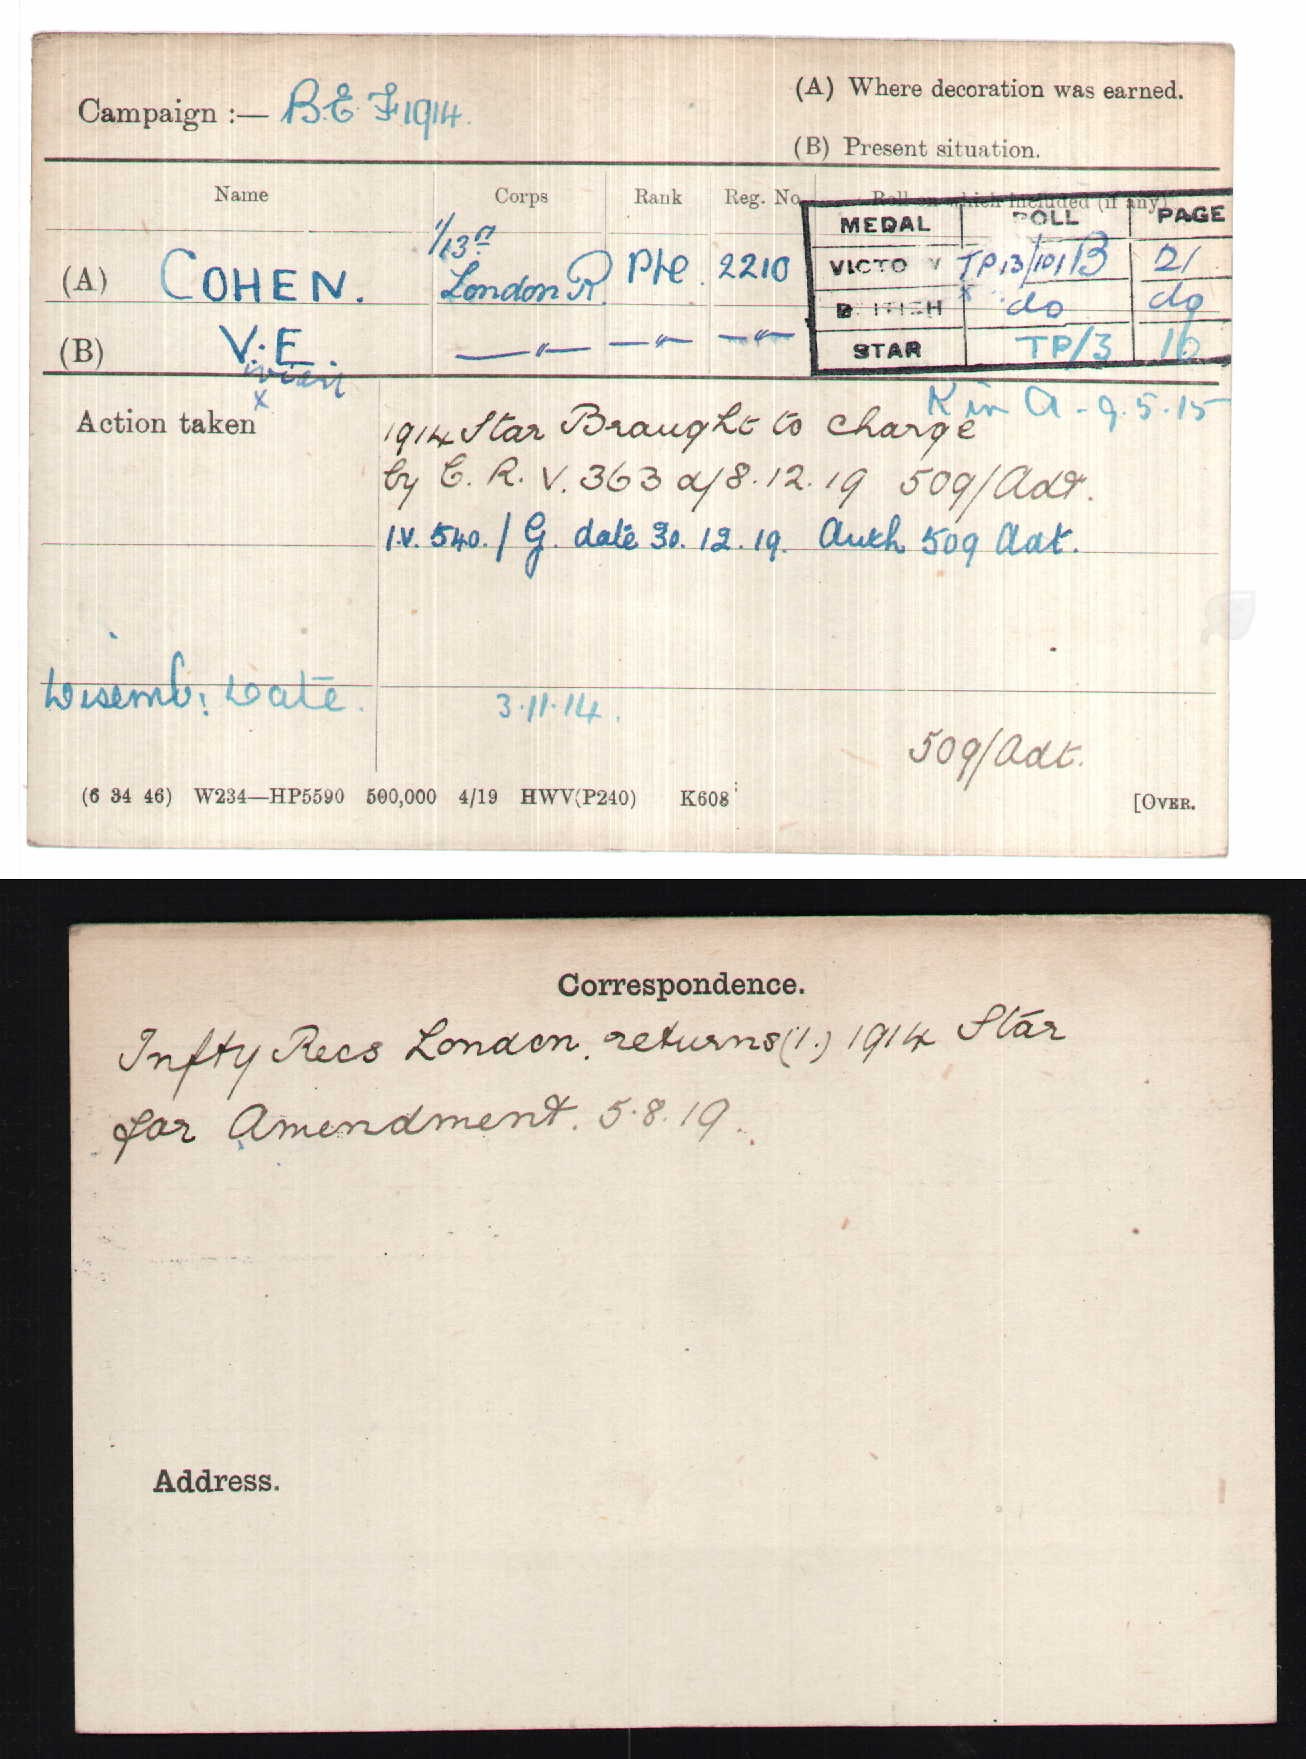 Campaign :— B.E.F 1914.
(A) Where decoration was earned.
(B) Present situation.
Name Corps Rank Reg. No. Roll on which included (if any)
MEDAL ROLL PAGE
(A) COHEN. 1/13th London R. Pte. 2210 VICTORY TP13/101B 21
BRITISH do do
(B) V.E. —"— —"— —"— STAR TP/3 16
vian
x
K in A - 9.5.15
Action taken 1914 Star Braught to charge
by C. R. V. 363 d/8.12.19 509/Adt.
I.V. 540./G. date 30.12.19. Auth 509 Adt.
Disemb: Date. 3.11.14.
509/Adt.
(6 34 46) W234—HP5590 500,000 4/19 HWV(P240) K608 [OVER.
Correspondence.
Infty Recs London, returns (1.) 1914 Star
for Amendment. 5.8.19.
Address.